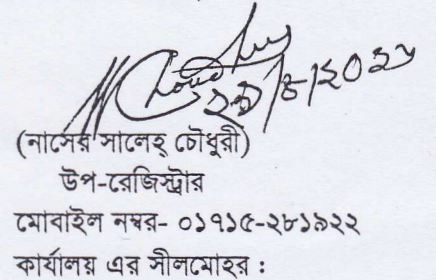 (নাসের সালেহ্ চৌধুরী)
উপ-রেজিস্ট্রার
মোবাইল নম্বর- ০১৭১৫-২৮১৯২২
কার্যালয় এর সীলমোহর :